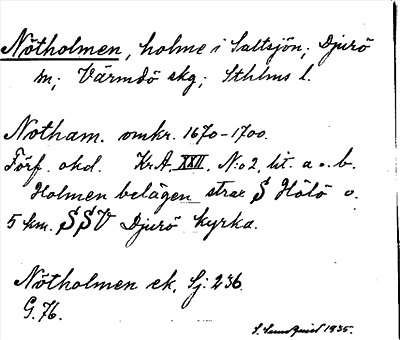 Nötholmen, holme i Saltsjön; Djurö
sn; Värmdö skg; Sthlms l.
Notham. omkr. 1670-1700.
Förf. okd. KrA XXII. N:o 2. lit. a o. b.
Holmen belägen strax S Hölö o.
5 km. SSV Djurö kyrka.
Nötholmen ek. Sj: 236.
G. 76.
S. Sundquist 1935.